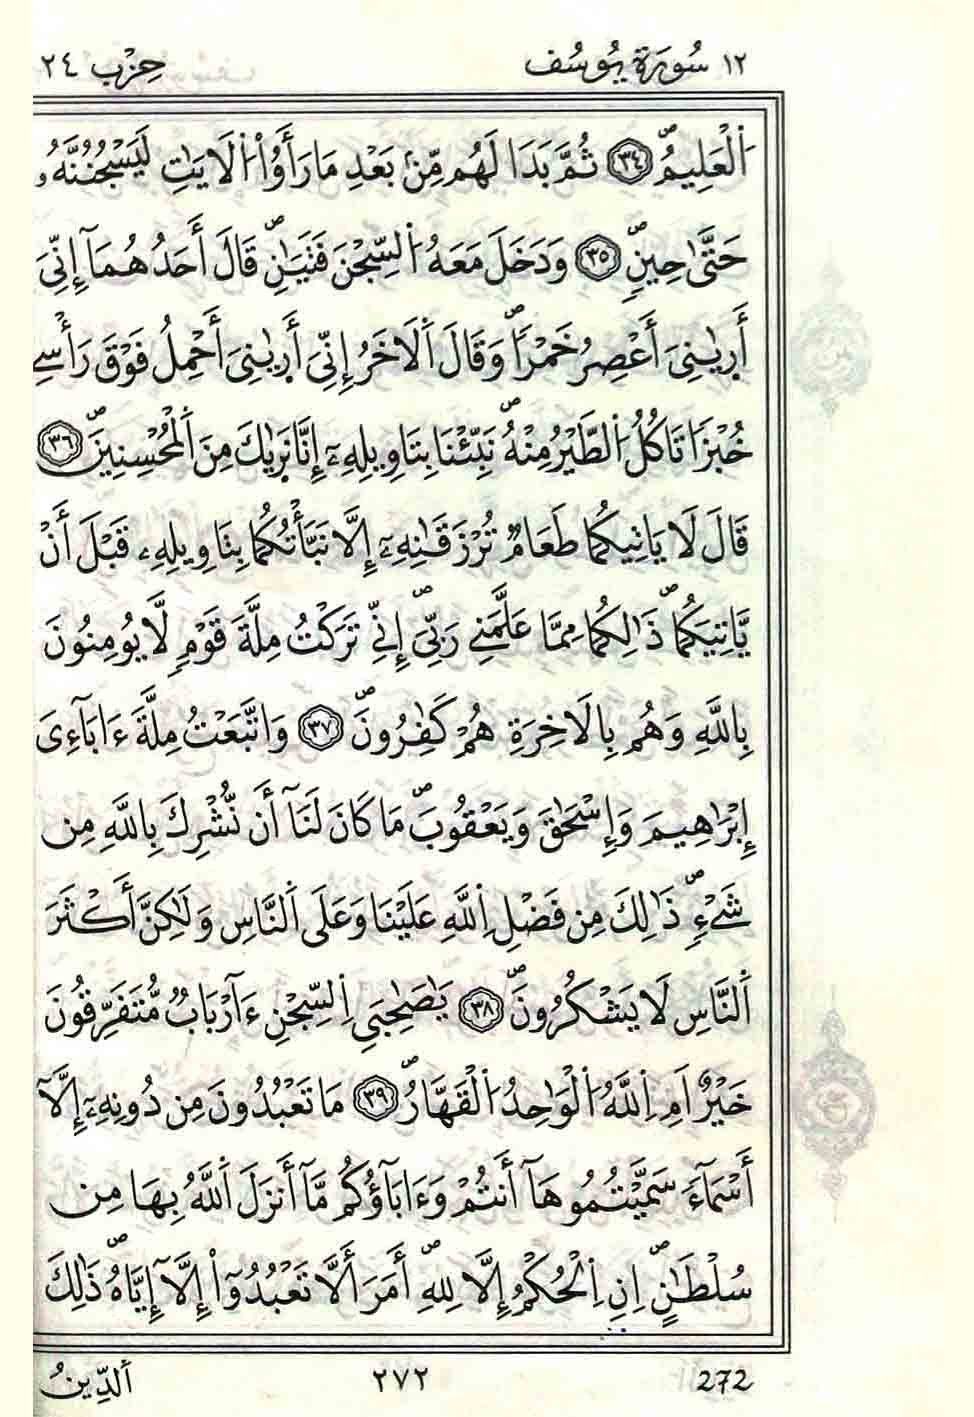 ١٢ سُورَةُ يُوسُف حِزْب ٢٤
اَ۬لْعَلِيمُۖ ٣٤ ثُمَّ بَدَا لَهُم مِّنۢ بَعْدِ مَا رَأَوُاْ اُ۬لَايَٰتِ لَيَسْجُنُنَّهُۥ
حَتَّىٰ حِينٖۖ ٣٥ وَدَخَلَ مَعَهُ اُ۬لسِّجْنَ فَتَيَٰنِۖ قَالَ أَحَدُهُمَآ إِنِّيَ
أَر۪يٰنِيَ أَعْصِرُ خَمْراٗۖ وَقَالَ اَ۬لَاخَرُ إِنِّيَ أَر۪يٰنِيَ أَحْمِلُ فَوْقَ رَأْسِے
خُبْزاٗ تَاكُلُ اُ۬لطَّيْرُ مِنْهُۖ نَبِّئْنَا بِتَاوِيلِهِۦٓ إِنَّا نَر۪يٰكَ مِنَ اَ۬لْمُحْسِنِينَۖ ٣٦
قَالَ لَا يَاتِيكُمَا طَعَامٞ تُرْزَقَٰنِهِۦٓ إِلَّا نَبَّأْتُكُمَا بِتَاوِيلِهِۦ قَبْلَ أَنْ
يَّاتِيَكُمَاۖ ذَٰلِكُمَا مِمَّا عَلَّمَنِے رَبِّيَۖ إِنِّے تَرَكْتُ مِلَّةَ قَوْمٖ لَّا يُومِنُونَ
بِاللَّهِ وَهُم بِالَاخِرَةِ هُمْ كَٰفِرُونَۖ ٣٧ وَاتَّبَعْتُ مِلَّةَ ءَابَآءِيَ
إِبْرَٰهِيمَ وَإِسْحَٰقَ وَيَعْقُوبَۖ مَا كَانَ لَنَآ أَن نُّشْرِكَ بِاللَّهِ مِن
شَےْءٖۖ ذَٰلِكَ مِن فَضْلِ اِ۬للَّهِ عَلَيْنَا وَعَلَى اَ۬لنَّاسِ وَلَٰكِنَّ أَكْثَرَ
اَ۬لنَّاسِ لَا يَشْكُرُونَۖ ٣٨ يَٰصَٰحِبَيِ اِ۬لسِّجْنِ ءَآرْبَابٞ مُّتَفَرِّقُونَ
خَيْرٌ اَمِ اِ۬للَّهُ اُ۬لْوَٰحِدُ اُ۬لْقَهَّارُۖ ٣٩ مَا تَعْبُدُونَ مِن دُونِهِۦٓ إِلَّآ
أَسْمَآءٗ سَمَّيْتُمُوهَآ أَنتُمْ وَءَابَآؤُكُم مَّآ أَنزَلَ اَ۬للَّهُ بِهَا مِن
سُلْطَٰنٍۖ اِنِ اِ۬لْحُكْمُ إِلَّا لِلهِۖ أَمَرَ أَلَّا تَعْبُدُوٓاْ إِلَّآ إِيَّاهُۖ ذَٰلِكَ
272 ٢٧٢ اَ۬لدِّينُ